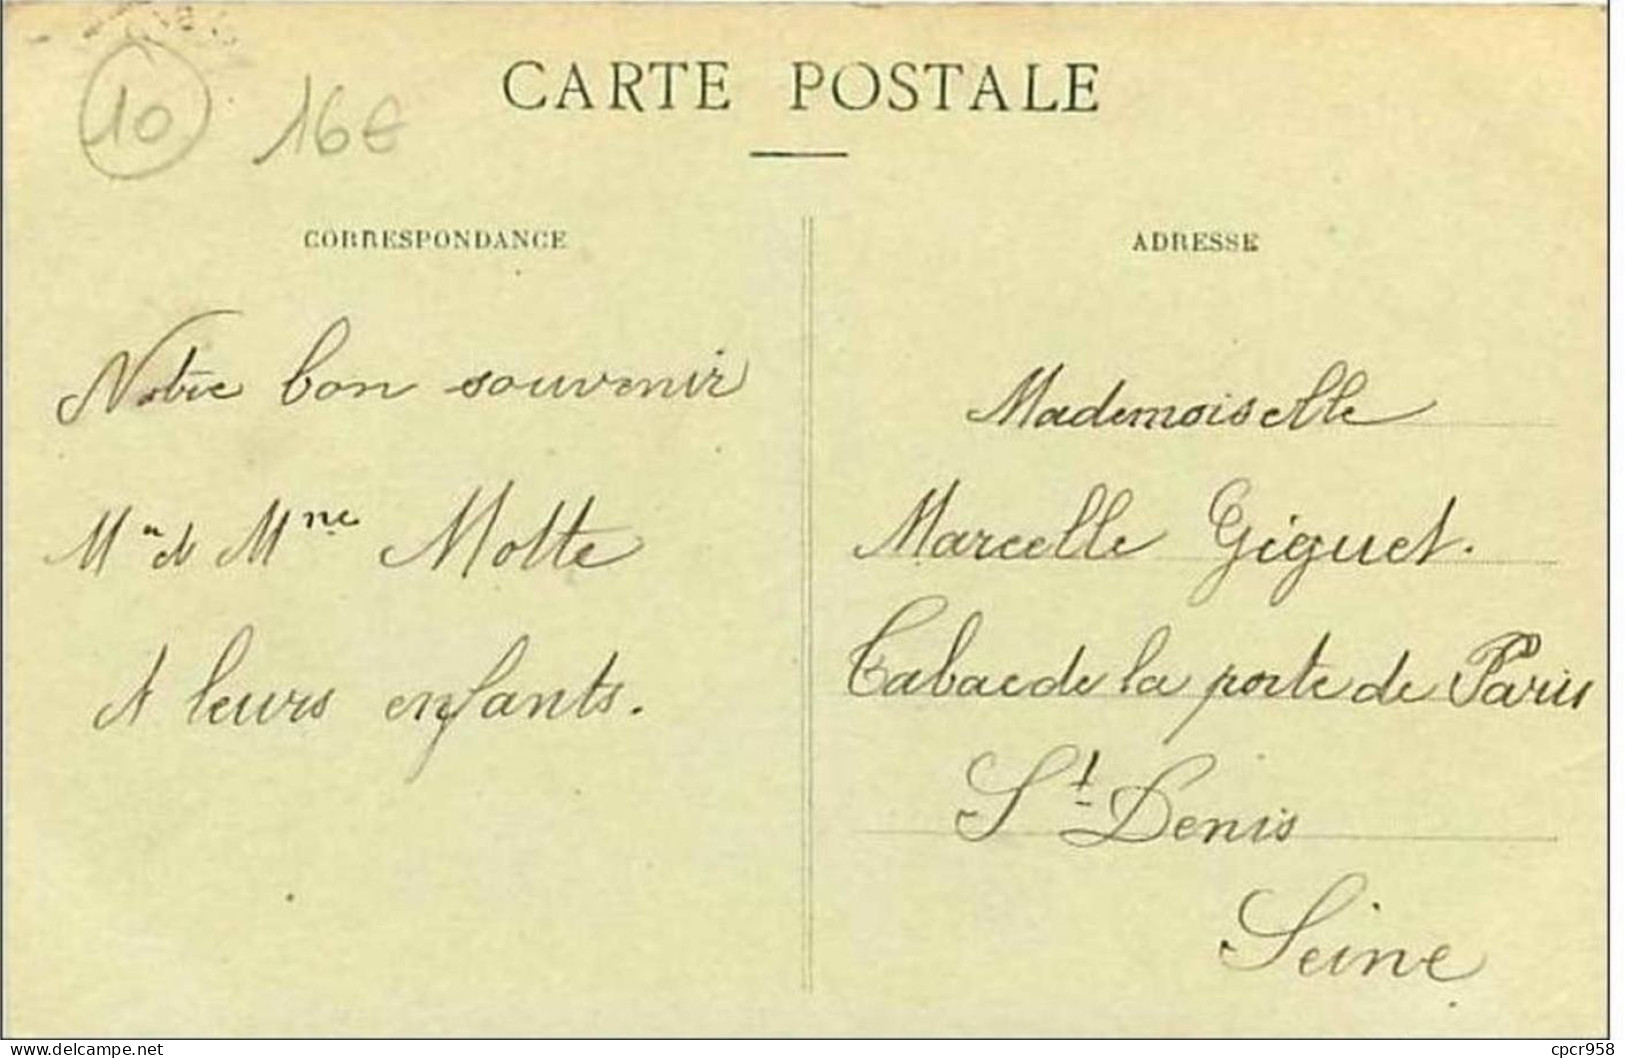 10
16€
CARTE POSTALE
CORRESPONDANCE
Notre bon souvenir
Mr et Mme Motte
et leurs enfants.
ADRESSE
Mademoiselle
Marcelle Giguet.
Tabac de la porte de Paris
St Denis
Seine
cpcr958